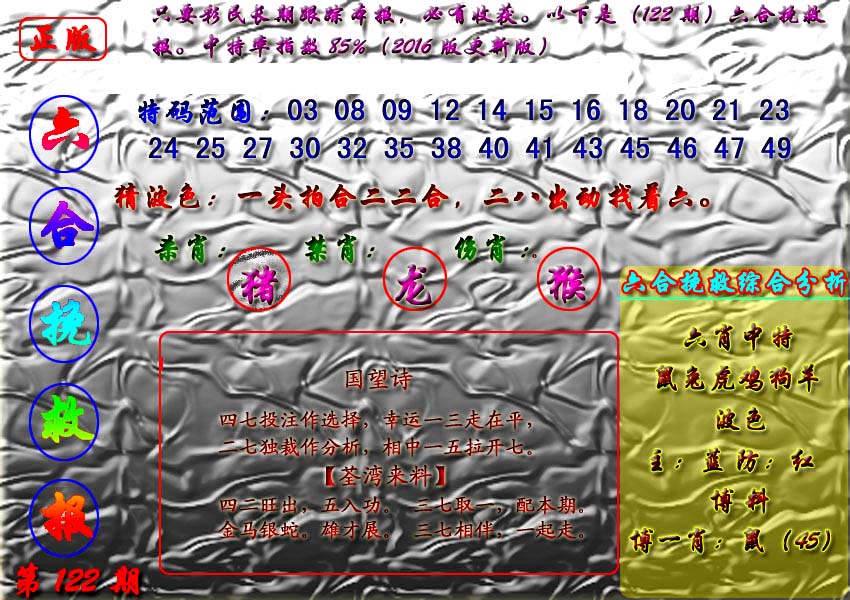 只要彩民长期跟踪本报，必有收获。以下是（122期）六合挽救
报。中特率指数85%（2016版更新版）
正版
六
合
挽
救
报
第122期
特码范围：03 08 09 12 14 15 16 18 20 21 23
24 25 27 30 32 35 38 40 41 43 45 46 47 49
猜波色：一头拍合二二合，二八出动找着六。
杀肖：猪 禁肖：龙 伤肖：猴
国望诗
四七投注作选择，幸运一三走在平，
二七独裁作分析，相中一五拉开七。
【荃湾来料】
四二旺出，五入功。 三七取一，配本期。
金马银蛇。雄才展。 三七相伴，一起走。
六合挽救综合分析
六肖中特
鼠兔虎鸡狗羊
波色
主：蓝防：红
博料
博一肖：鼠（45）